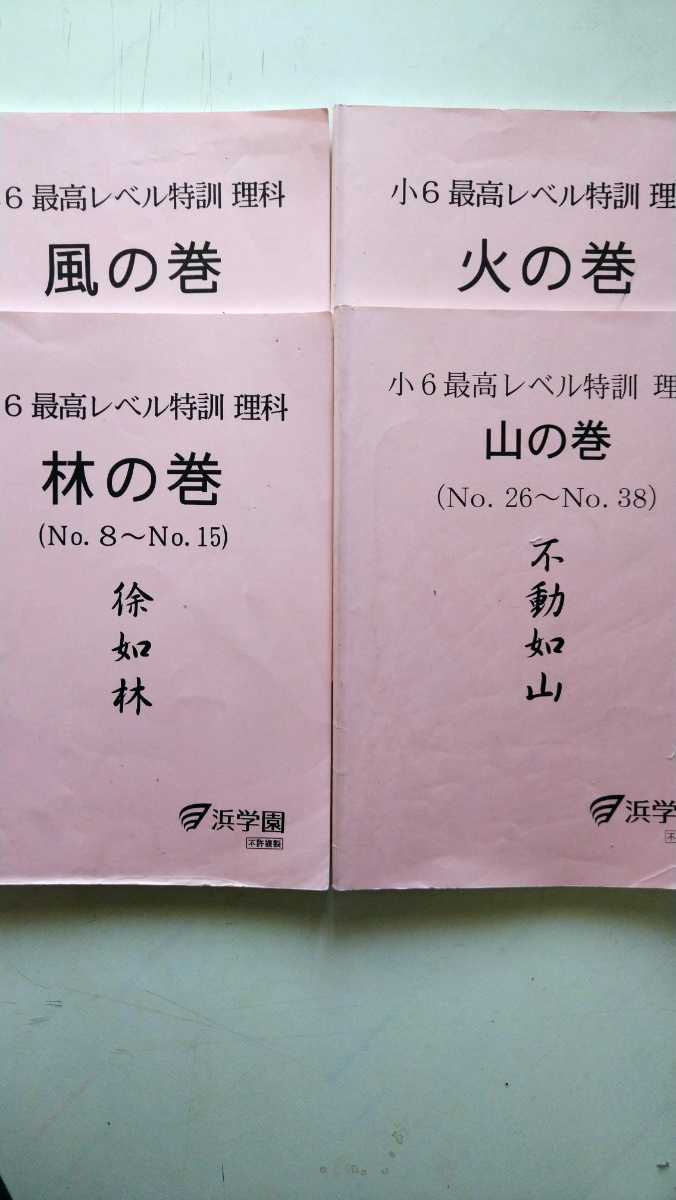 6 最高レベル特訓 理科
風の巻
小6 最高レベル特訓 理
火の巻
6 最高レベル特訓 理科
林の巻
(No.8～No.15)
徐如林
浜学園
不許複製
小6最高レベル特訓 理
山の巻
(No. 26～No. 38)
不動如山
浜学